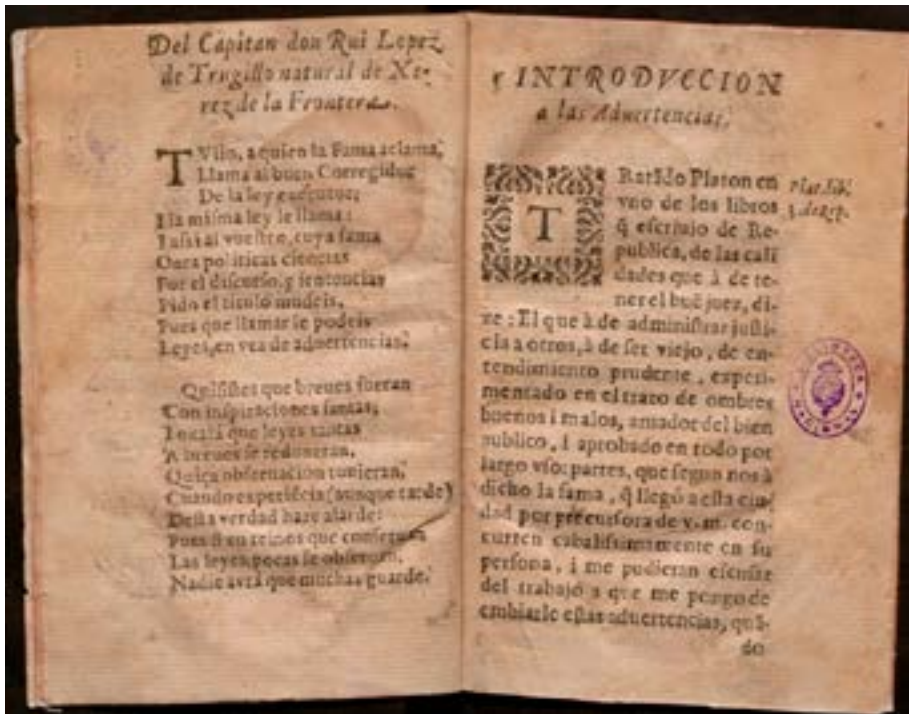 Del Capitan don Rui Lopez
de Trugillo natural de Xe-
rez de la Frontera.
TVlio, a quien la Fama aclama,
Llama al buen Corregidor
De la ley executor;
I la misma ley le llama:
I assi al vuestro, cuya fama
Por el discurso, i sentencias
Pido el titulo mudeis,
Pues que llamarse podeis
Leyes, en vez de aduertencias.
Quisistes que breues fueran
Con inspiraciones santas,
I oxalá que leyes tantas
A breues se reduxeran,
Quiça obseruacion tuuieran,
Cuando experiēcia (aunque tarde)
Desta verdad haze alarde:
Pues si en reinos que
Las leyes pocas se obseruan,
Nadie avrá que muchas guarde.
INTRODVCCION
a las Aduertencias.
TRatādo Platon en
vno de los libros
q̃ escriuio de Re-
publica, de las cali
dades que à de te-
ner el buē juez, di-
ze: El que à de administrar justi-
cia a otros, à de ser viejo, de en-
tendimiento prudente, experi-
mentado en el trato de ombres
buenos i malos, amador del bien
publico, i aprobado en todo por
largo vso: partes, que segun nos à
dicho la fama, q̃ llegó a esta ciu-
dad por precursora de v.m. con-
curren cabalissimamente en su
persona, i me pudieran escusar
del trabajo a que me pongo de
embiarle estas aduertencias, quā-
do
Plat. lib.
3. de Rep.
BIBLIOTECA NACIONAL